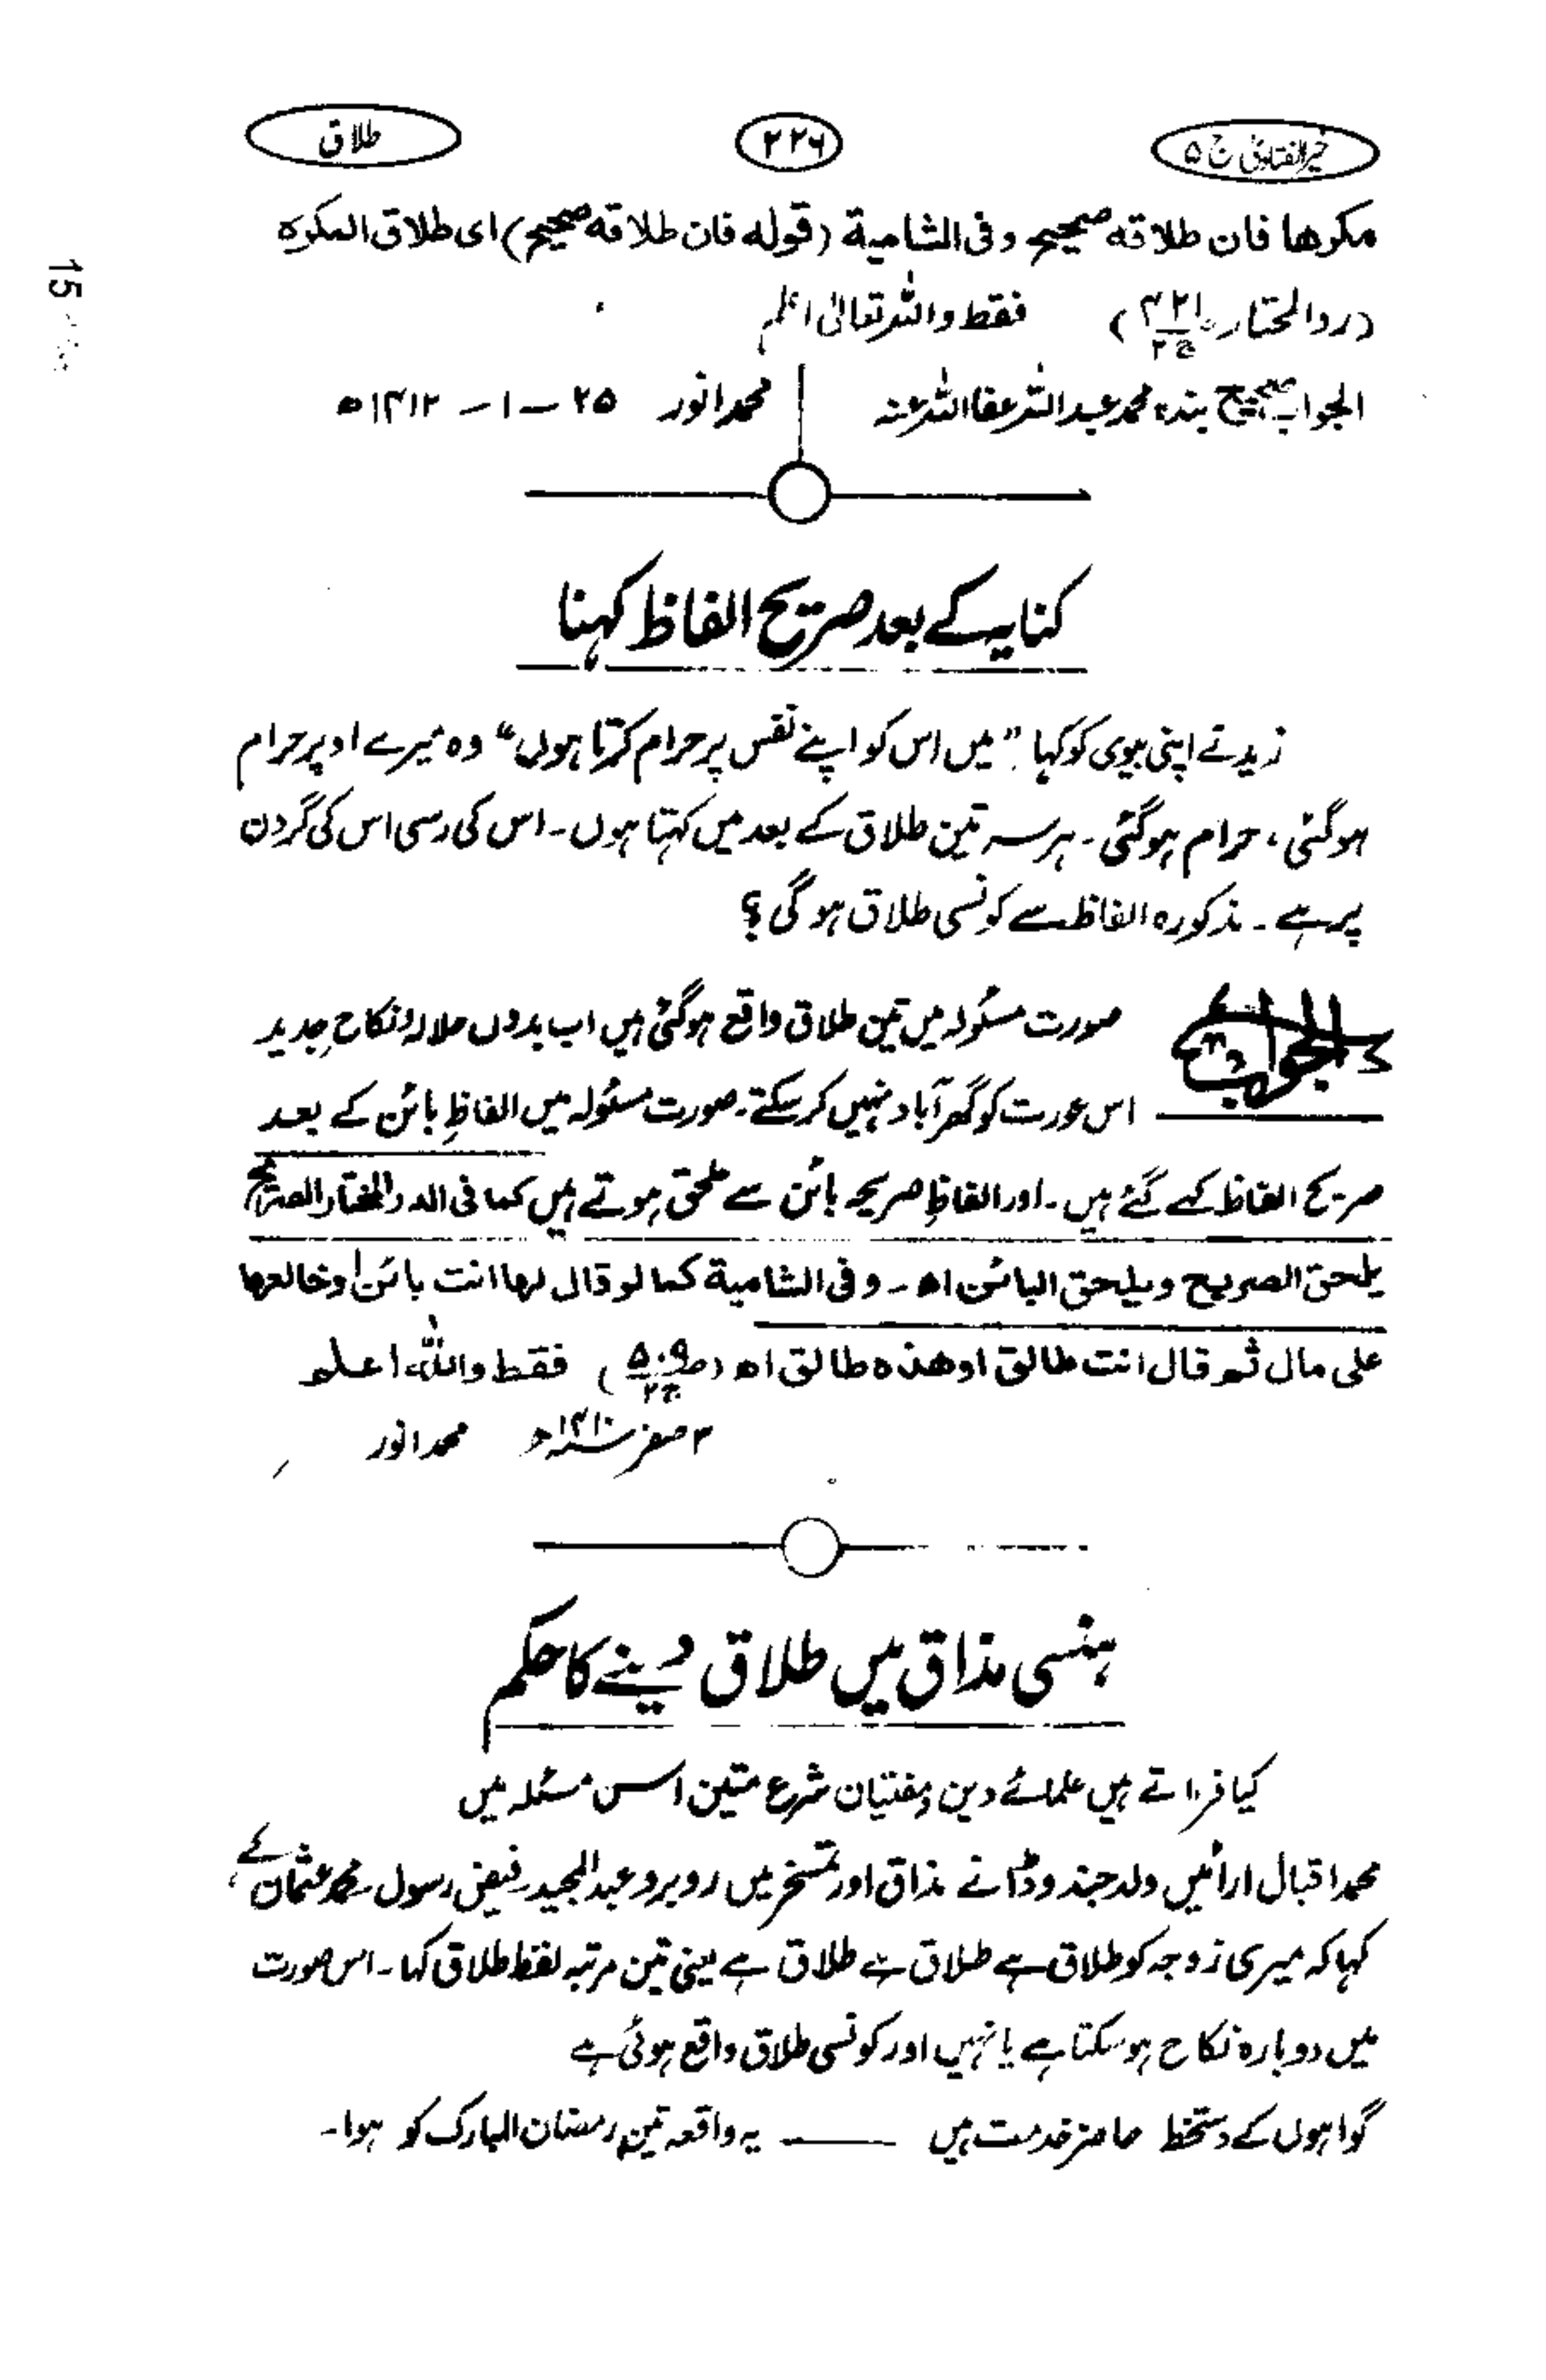 خیر الفتاویٰ ج ۵
۲۲۶
طلاق
مکرھا فان طلاقہ صحیح وفی الشامیة (قولہ فان طلاقہ صحیح) ای طلاق المکرہ
(رد المحتار ص۴۲۱ ج۲) فقط واللہ تعالیٰ اعلم
الجواب صحیح بندہ محمد عبداللہ عفا اللہ عنہ
محمد انور ۲۵ – ۱ – ۱۴۱۲ھ
کنایہ کے بعد صریح الفاظ کہنا
زید نے اپنی بیوی کو کہا : ” میں اس کو اپنے نفس پر حرام کرتا ہوں “ وہ میرے اوپر حرام
ہو گئی ، حرام ہو گئی ۔ ہر سہ تین طلاق کے بعد میں کہتا ہوں ۔ اس کی رسی اس کی گردن
پر ہے ۔ مذکورہ الفاظ سے کونسی طلاق ہو گی ؟
الجواب
صورت مسئولہ میں تین طلاق واقع ہو گئی ہیں اب بدوں حلالہ و نکاحِ جدید
اس عورت کو گھر آباد نہیں کر سکتے ۔ صورت مسئولہ میں الفاظِ بائن کے بعد
صریح الفاظ کہے گئے ہیں ۔ اور الفاظِ صریحہ بائن سے ملحق ہوتے ہیں کما فی الدر المختار الصریح
یلحق الصریح ویلحق البائن اھ ۔ وفی الشامیة کما لو قال لھا انت بائن او خالعھا
علی مال ثم قال انت طالق او ھذہ طالق اھ (ص۵۰۹ ج۲) فقط واللہ اعلم
محمد انور ۳ صفر ۱۴۱۰ھ
ہنسی مذاق میں طلاق دینے کا حکم
کیا فرماتے ہیں علمائے دین و مفتیان شرع متین اس مسئلہ میں
محمد اقبال ارائیں ولد جندوڈا نے مذاق اور تمسخر میں روبرو عبدالمجید فیض رسول محمد عثمان کے
کہا کہ میری زوجہ کو طلاق ہے طلاق ہے طلاق ہے یعنی تین مرتبہ لفظ طلاق کہا ۔ اس صورت
میں دوبارہ نکاح ہو سکتا ہے یا نہیں اور کونسی طلاق واقع ہوئی ہے
گواہوں کے دستخط حاضر خدمت ہیں ــــــ یہ واقعہ تین رمضان المبارک کو ہوا ۔
15